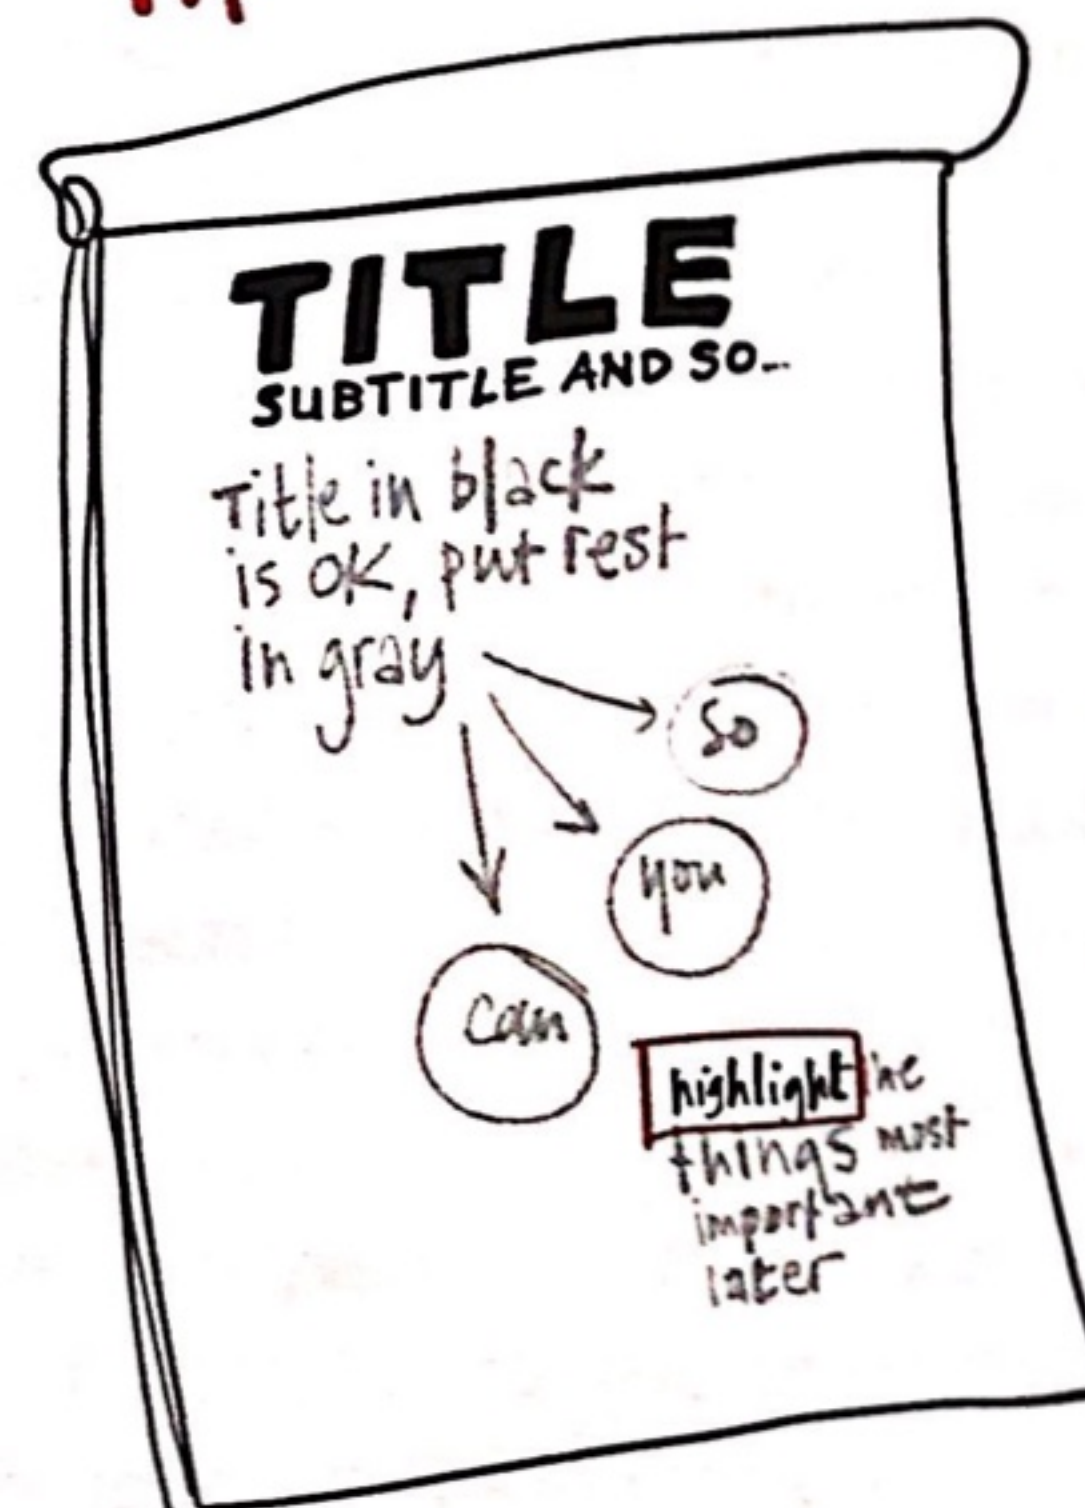 TITLE
SUBTITLE AND SO...
Title in black
is OK, put rest
in gray
So
you
Can
highlight the
things most
important
later